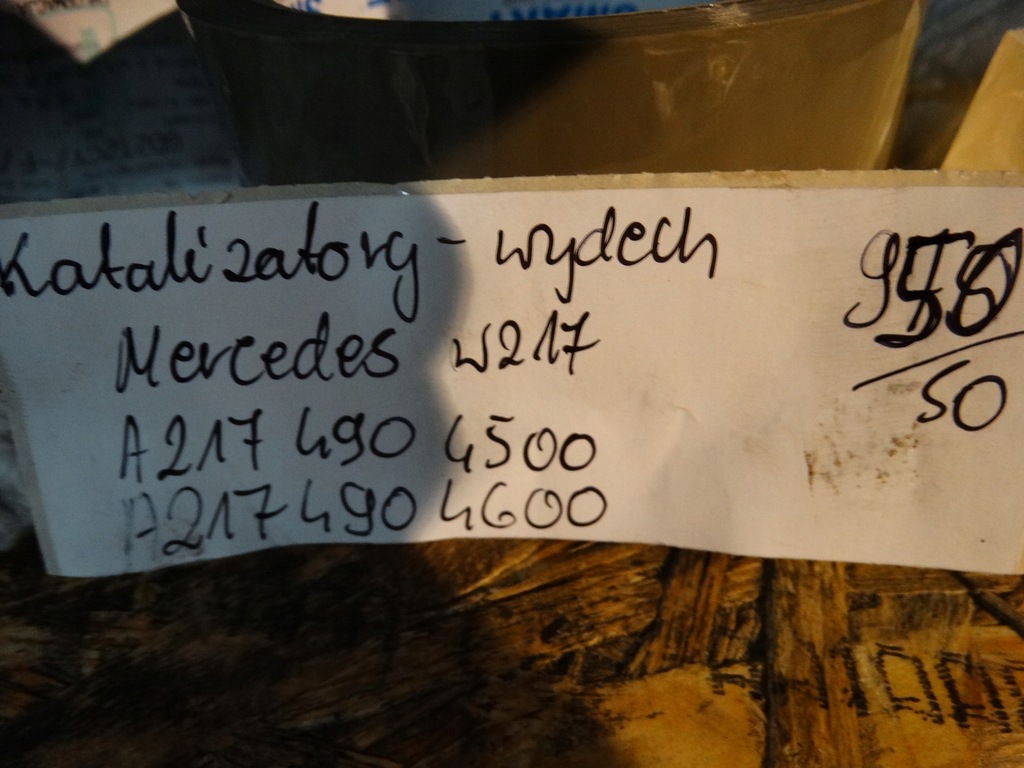 Katalizatory - wydech
Mercedes W217
A217 490 4500
A217 490 4600
50